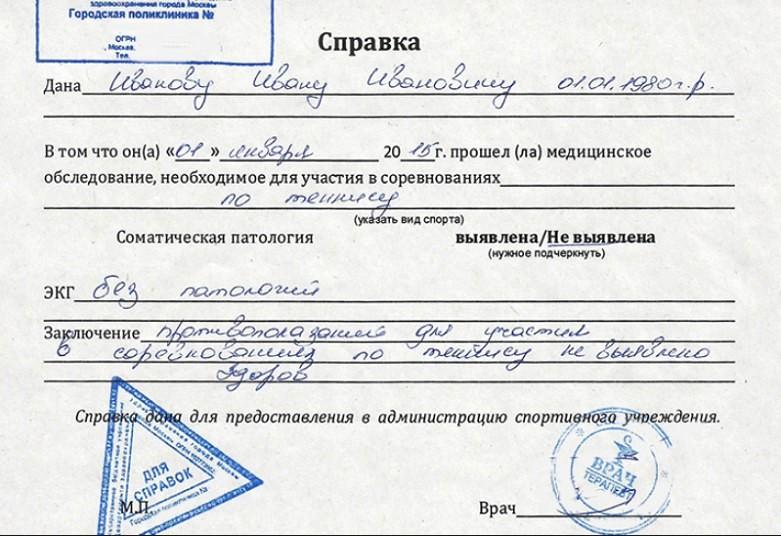 здравоохранения города Москвы
Городская поликлиника №
ОГРН
, Москва,
Тел.
Справка
Дана Иванову Ивану Ивановичу 01.01.1980г.р.
В том что он(а) «01» января 2015г. прошел (ла) медицинское
обследование, необходимое для участия в соревнованиях
по теннису
(указать вид спорта)
Соматическая патология выявлена/Не выявлена
(нужное подчеркнуть)
ЭКГ без патологий
Заключение противопоказаний для участия
в соревнованиях по теннису не выявлено
Здоров
Справка дана для предоставления в администрацию спортивного учреждения.
ДЛЯ
СПРАВОК
Городская поликлиника №
М.П.
Врач
ВРАЧ
ТЕРАПЕВТ